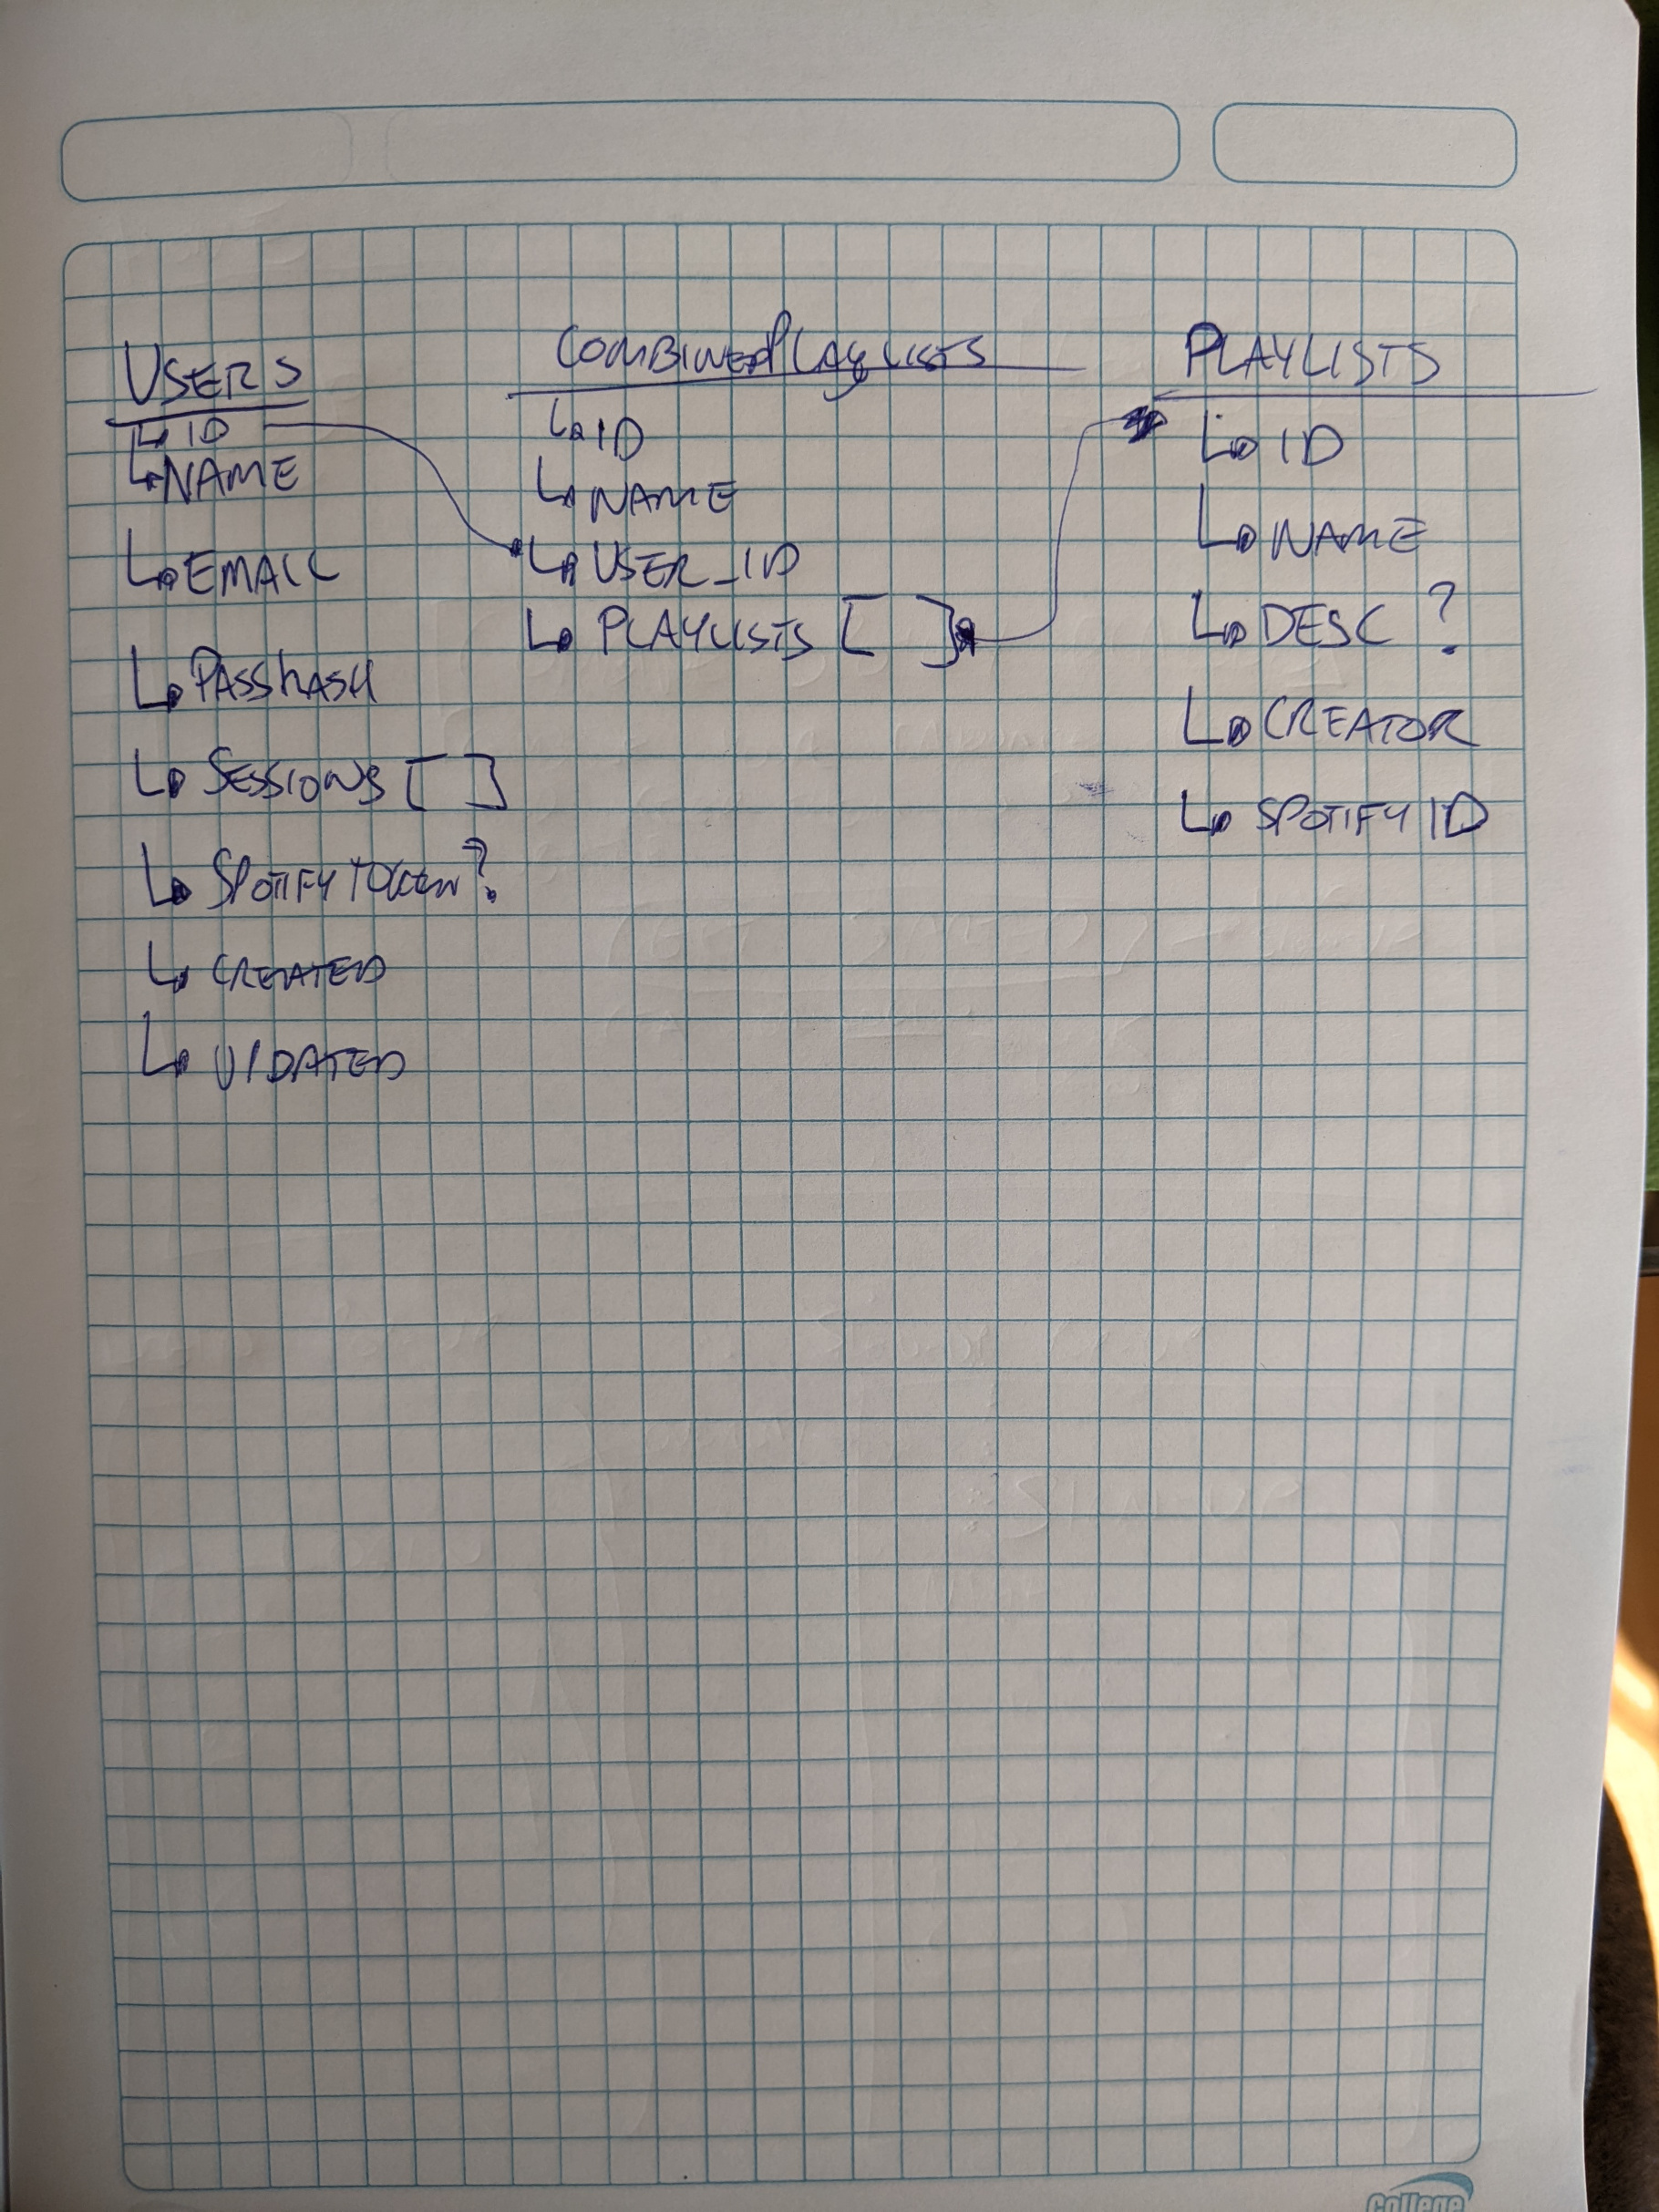 USERS
ID
NAME
EMAIL
PASSHASH
SESSIONS [ ]
SPOTIFY TOKEN?
CREATED
UPDATED
COMBINEDPLAYLISTS
ID
NAME
USER_ID
PLAYLISTS [ ]
PLAYLISTS
ID
NAME
DESC ?
CREATOR
SPOTIFY ID
College